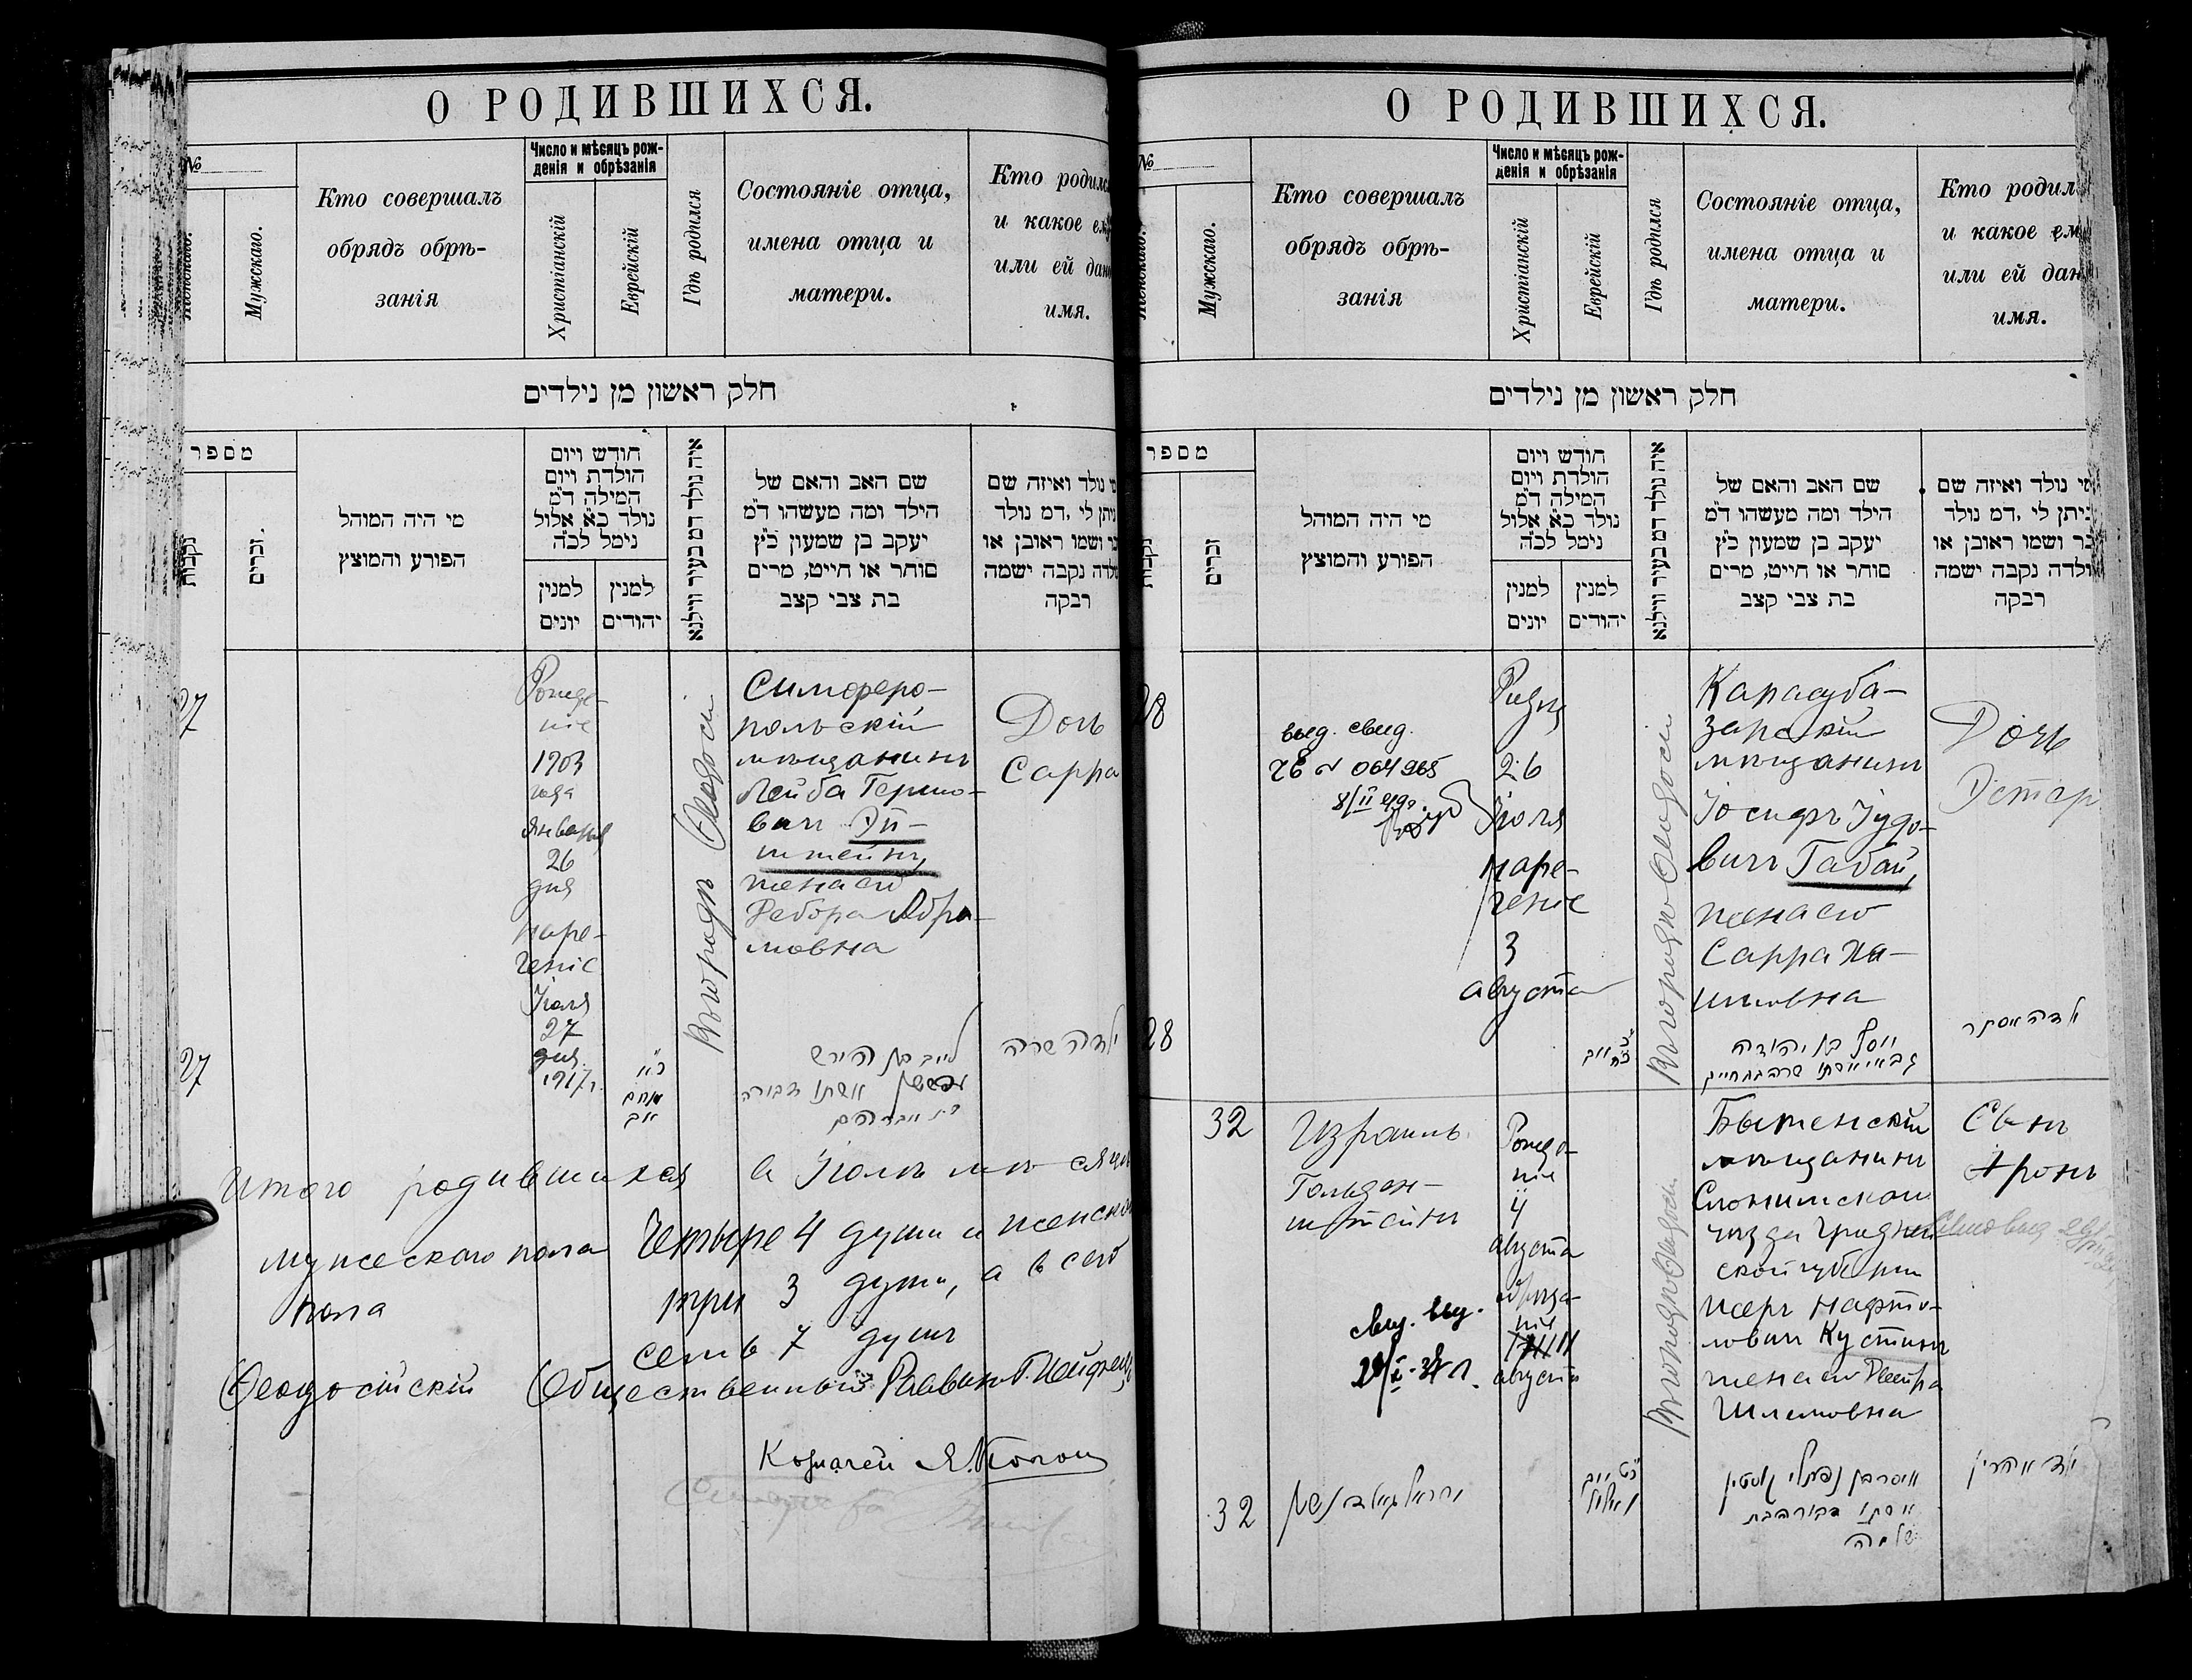 О РОДИВШИХСЯ.
№
Женскаго.
Мужскаго.
Кто совершалъ
обрядъ обрѣ-
занія
Число и мѣсяцъ рож-
денія и обрѣзанія
Христіанскій
Еврейскій
Гдѣ родился
Состояніе отца,
имена отца и
матери.
Кто родился
и какое ему
или ей дано
имя.
חלק ראשון מן נילדים
מספר
נקבות
זכרים.
מי היה המוהל
הפורע והמוצץ
חודש ויום
הולדת ויום
המילה ד״מ
נולד כ״א אלול
נימל לכ״ה
למנין
יונים
למנין
יהודים
איה נולד דמ בעיר ווילנא
שם האב והאם של
הילד ומה מעשהו ד״מ
יעקב בן שמעון כ״ץ
סוחר או חייט, מרים
בת צבי קצב
מי נולד ואיזה שם
ניתן לי, דמ נולד
זכר ושמו ראובן או
ילדה נקבה ישמה
רבקה
27
Рожде-
ніе
1903
года
Января
26
дня
наре-
ченіе
Іюля
27
дня
1917 г.
Въ городѣ Ѳеодосіи
Симферо-
польскій
мѣщанинъ
Лейба Гершо-
вичъ Эп-
штейнъ,
жена его
Дебора Абра-
мовна
Дочь
Сарра
27
כ״א
מנחם
אב
לייב בן הירש
עפשטיין אשתו דבורה
בת אברהם
ילדה שרה
Итого родившихся в Іюлѣ мѣсяцѣ
мужескаго пола Четыре 4 души и женскаго
пола три 3 души, а всего
семь 7 душъ
Ѳеодосійскій Общественный Раввинъ
Казначей
О РОДИВШИХСЯ.
№
Женскаго.
Мужскаго.
Кто совершалъ
обрядъ обрѣ-
занія
Число и мѣсяцъ рож-
денія и обрѣзанія
Христіанскій
Еврейскій
Гдѣ родился
Состояніе отца,
имена отца и
матери.
Кто родил
и какое ему
или ей дан
имя.
חלק ראשון מן נילדים
מספר
נקבות
זכרים
מי היה המוהל
הפורע והמוצץ
חודש ויום
הולדת ויום
המילה ד״מ
נולד כ״א אלול
נימל לכ״ה
למנין
יונים
למנין
יהודים
איה נולד דמ בעיר ווילנא
שם האב והאם של
הילד ומה מעשהו ד״מ
יעקב בן שמעון כ״ץ
סוחר או חייט, מרים
בת צבי קצב
מי נולד ואיזה שם
ניתן לי, דמ נולד
זכר ושמו ראובן או
ילדה נקבה ישמה
רבקה
28
выд. свид.
ЧЕ № 064965
26
Іюля
наре-
ченіе
3
августа
Въ городѣ Ѳеодосіи
Карасуба-
зарскій
мѣщанинъ
Іосифъ Іудо-
вичъ Габай,
жена его
Сарра Ха-
имовна
Дочь
Эстер
28
יוסף בן יהודה
גבאי אשתו שרה בת חיים
ילדה אסתר
32
Израиль
Гольден-
штейнъ
свид. выд.
Рожде-
ніе
4
августа
обрѣза-
ніе
августа
Въ городѣ Ѳеодосіи
Бытенскій
мѣщанинъ
Слонимскаго
уѣзда Гроднен
ской губерніи
Нафто-
ловичъ Кустинъ
жена его
Шлемовна
Сынъ
Аронъ
32
ילד אהרן